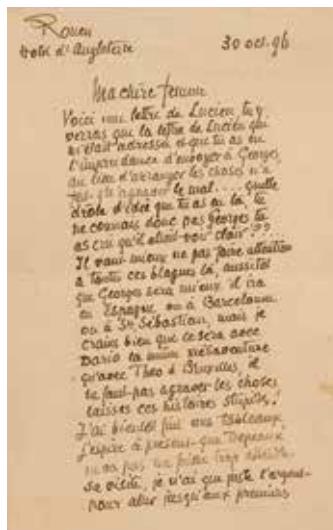 Rouen
Hotel d'Angleterre
30 oct. 96
Ma chère femme
Voici une lettre de Lucien tu y
verras que la lettre de Lucien qui
m'était adressée et que tu as eu
l'imprudence d'envoyer à Georges,
au lieu d'arranger les choses n'a
fait qu'agraver le mal.... quelle
drôle d'idée que tu as eu là, tu
ne connais donc pas Georges tu
as cru qu'il allait voir clair ???
Il vaut mieux ne pas faire attention
à toutes ces blagues là, aussitôt
que Georges sera mieux il ira
en Espagne ou à Barcelonne
ou à St Sébastian, mais je
crains bien que ce sera avec
Dario la même mésaventure
qu'avec Théo à Bruxelles, il
ne faut pas agraver les choses
laisses ces histoires stupides!
J'ai bientôt fini mes tableaux,
j'espère à présent que
pas
sa visite, je n'ai que juste l'argent
pour aller jusqu'aux premiers